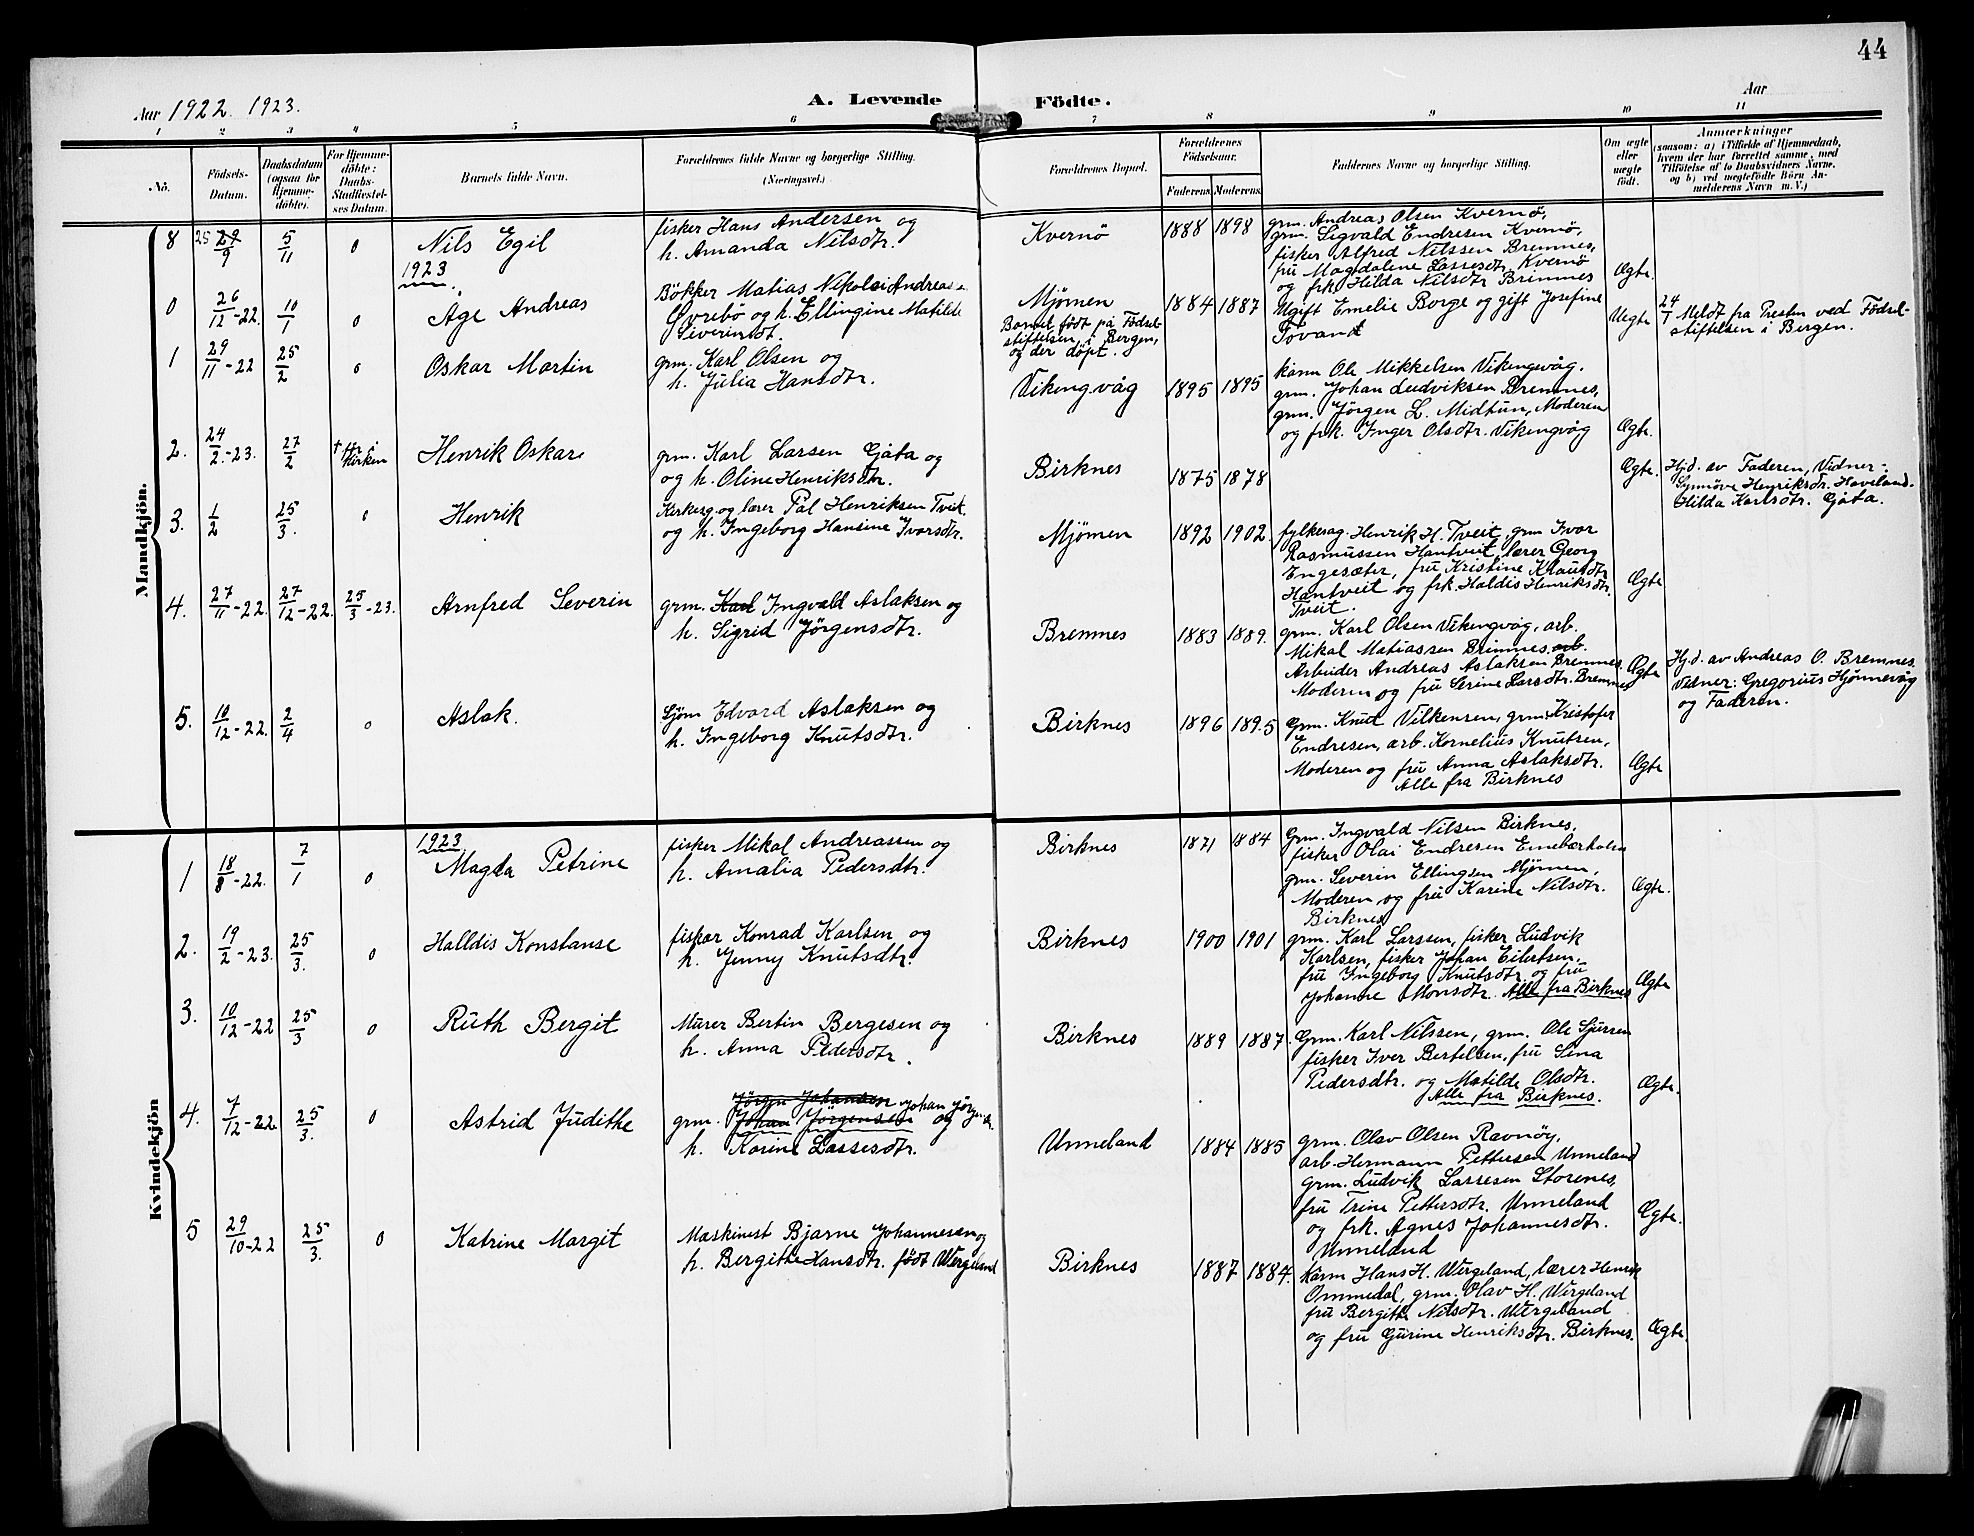 44
Aar 1922 1923.
A. Levende Födte.
Aar
1 2 3 4 5 6 7 8 9 10 11
No.
Födsels-
Datum.
Daabsdatum
(ogsaa for
Hjemme-
döbte).
For Hjemme-
döbte:
Daabs-
Stadfæstel-
ses Datum.
Barnets fulde Navn.
Forældrenes fulde Navne og borgerlige Stilling.
(Næringsvei.)
Forældrenes Bopæl.
Forældrenes
Födselsaar.
Faderens. Moderens.
Faddernes Navne og borgerlige Stilling.
Om ægte
eller
uægte
födt.
Anmærkninger
(saasom: a) i Tilfælde af Hjemmedaab,
hvem der har forrettet samme, med
Tilföielse af to Daabsvidners Navne,
og b) ved uægtefödte Börn An-
melderens Navn m. V.)
Mandkjön.
8 25 29/9 5/11 0 Nils Egil
fisker Hans Andersen og
h. Amanda Nilsdtr.
Kvernö 1888 1898
grm. Andreas Olsen Kvernö,
grm. Sigvald Endresen Kvernö,
fisker Alfred Nilssen Bremnes,
fru Magdalene Lassesdtr. Kvernö
og frk. Hilda Nilsdtr Brimnes
Ægte.
1923
0 26/12-22. 10/1 0 Age Andreas
Bökker Matias Nikolai Andreas
Övrebö og h. Ellingine Matilde
Severinsdt.
Mjömen
Barnet födt på Födsel-
stiftelsen, i Bergen,
og der döpt.
1884 1887
Ugift Emelie Borge og gift Josefine
Tovand
Uegte
24/1 Meldt fra Presten ved Födsel-
stiftelsen i Bergen.
1 29/11-22 25/2 0 Oskar Martin
grm. Karl Olsen og
h. Julia Hansdtr.
Vikingvåg 1895 1895
kårm Ole Mikkelsen Vikingvåg.
grm. Johan Ludviksen Bremnes,
grm. Jörgen L. Midtun, Moderen
og frk. Inger Olsdtr. Vikingvåg
Ægte.
2. 24/2.-23. 27/2 i Kirken Henrik Oskar
grm. Karl Larsen Gåta og
og h. Oline Henriksdtr.
Birknes 1875 1878
Ægte.
Hjd. av Faderen, Vidner:
Synnöve Henriksdtr. Haveland.
Hilda Karlsdtr. Gåta.
3. 1/2 25/3. 0 Henrik
Kirkesg. og lærer Pål Henriksen Tveit
og h. Ingeborg Hansine Ivarsdtr.
Mjömen 1892 1902.
fylkesag. Henrik H. Tveit, grm Ivar
Rasmussen Hantveit, lærer Georg
Engesæter, fru Kristine Knutsdtr
Hantveit og frk. Haldis Henriksdtr.
Tveit.
Ægte
4. 27/11-22. 27/12-22. 25/3-23. Arnfred Severin
grm. Karl Ingvald Aslaksen og
h. Sigrid Jörgensdtr.
Bremnes 1883 1889.
grm. Karl Olsen Vikingvåg, arb.
Mikal Matiassen Brimnes, arb.
Arbeider Andreas Aslaksen Bremnes
Moderen og fru Serine Larsdtr. Bremnes
Ægte
Hjd. av Andreas O. Bremnes.
Vidner: Gregorius Hjönnevåg
og Faderen.
5. 10/12-22. 2/4 0 Aslak.
Sjöm Edvard Aslaksen og
h. Ingeborg Knutsdtr.
Birknes 1896 1895
Grm. Knud Vilkensen, grm. Kristofer
Endresen, arb. Kornelius Knutsen,
Moderen og fru Anna Aslaksdtr.
Alle fra Birknes
Ægte
Kvindekjön
1923
1 18/8-22. 7/1 0 Magda Petrine
fisker Mikal Andreassen og
h. Amalia Pedersdtr.
Birknes 1871 1884
Grm. Ingvald Nilsen Birknes,
fisker Olai Endresen Einebærholm
grm. Severin Ellingsen Mjömen,
Moderen og fru Karine Nilsdtr.
Birknes
Ægte.
2. 19/2-23. 25/3. 0 Halldis Konstanse
fisker Konrad Karlsen og
h. Jenny Knutsdtr.
Birknes 1900 1901
grm. Karl Larssen, fisker Ludvik
Karlsen, fisker Johan Eilertsen.
fru Ingeborg Knutsdtr og fru
Johanne Monsdtr. Alle fra Birknes
Ægte
3. 10/12-22 25/3 0 Ruth Bergit
Murer Bertin Bergesen og
h. Anna Pedersdtr.
Birknes 1889 1887.
Grm. Karl Nilssen, grm. Ole Sjursen
fisker Iver Bertelsen, fru Sina
Pedersdtr. og Matilde Olsdtr.
Alle fra Birknes.
Ægte.
4. 7/12-22. 25/3. 0 Astrid Judithe
Jörgen Johansen Johan Jörgensen
grm. Johan Jörgensen og
h. Karine Lassesdtr.
Unneland 1884 1885
grm. Olav Olsen Ravnöy,
arb. Hermann Pettersen Unneland
grm. Ludvik Lassesen Storenes,
fru Trine Pettersdtr. Unneland
og frk. Agnes Johannesdtr.
Unneland
Ægte.
5 29/10-22 25/3. 0 Katrine Margit
Maskinist Bjarne Johannesen og
h. Bergithe Hansdtr. födt Wergeland
Birknes 1887 1884.
Kårm Hans H. Wergeland, lærer Henrik
Ommedal, grm. Olav H. Wergeland
fru Bergithe Nilsdtr. Wergeland
og fru Gurine Henriksdtr. Birknes.
Ægte.